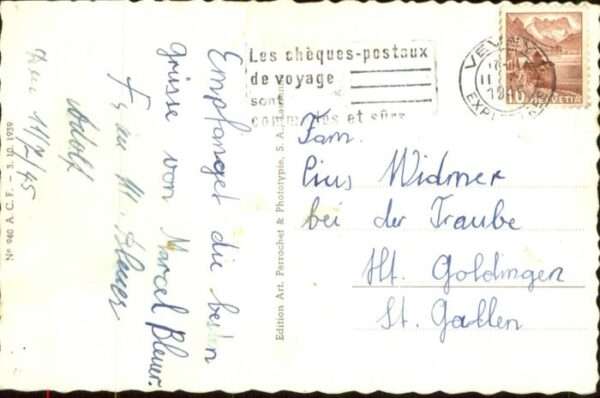 Les chèques-postaux
de voyage
sont
commodes et sûrs
VEVEY
1945
EXP
10 HELVETIA
Empfanget die besten
grüsse von Marcel Bleuer.
M. Bleuer
Adolf
11/7/45
Fam.
Pius Widmer
bei der Traube
Ht. Goldingen
St. Gallen
Edition Art. Perrochet & Phototypie, S. A.,
Nº 940 A C. F. — 3. 10. 1939